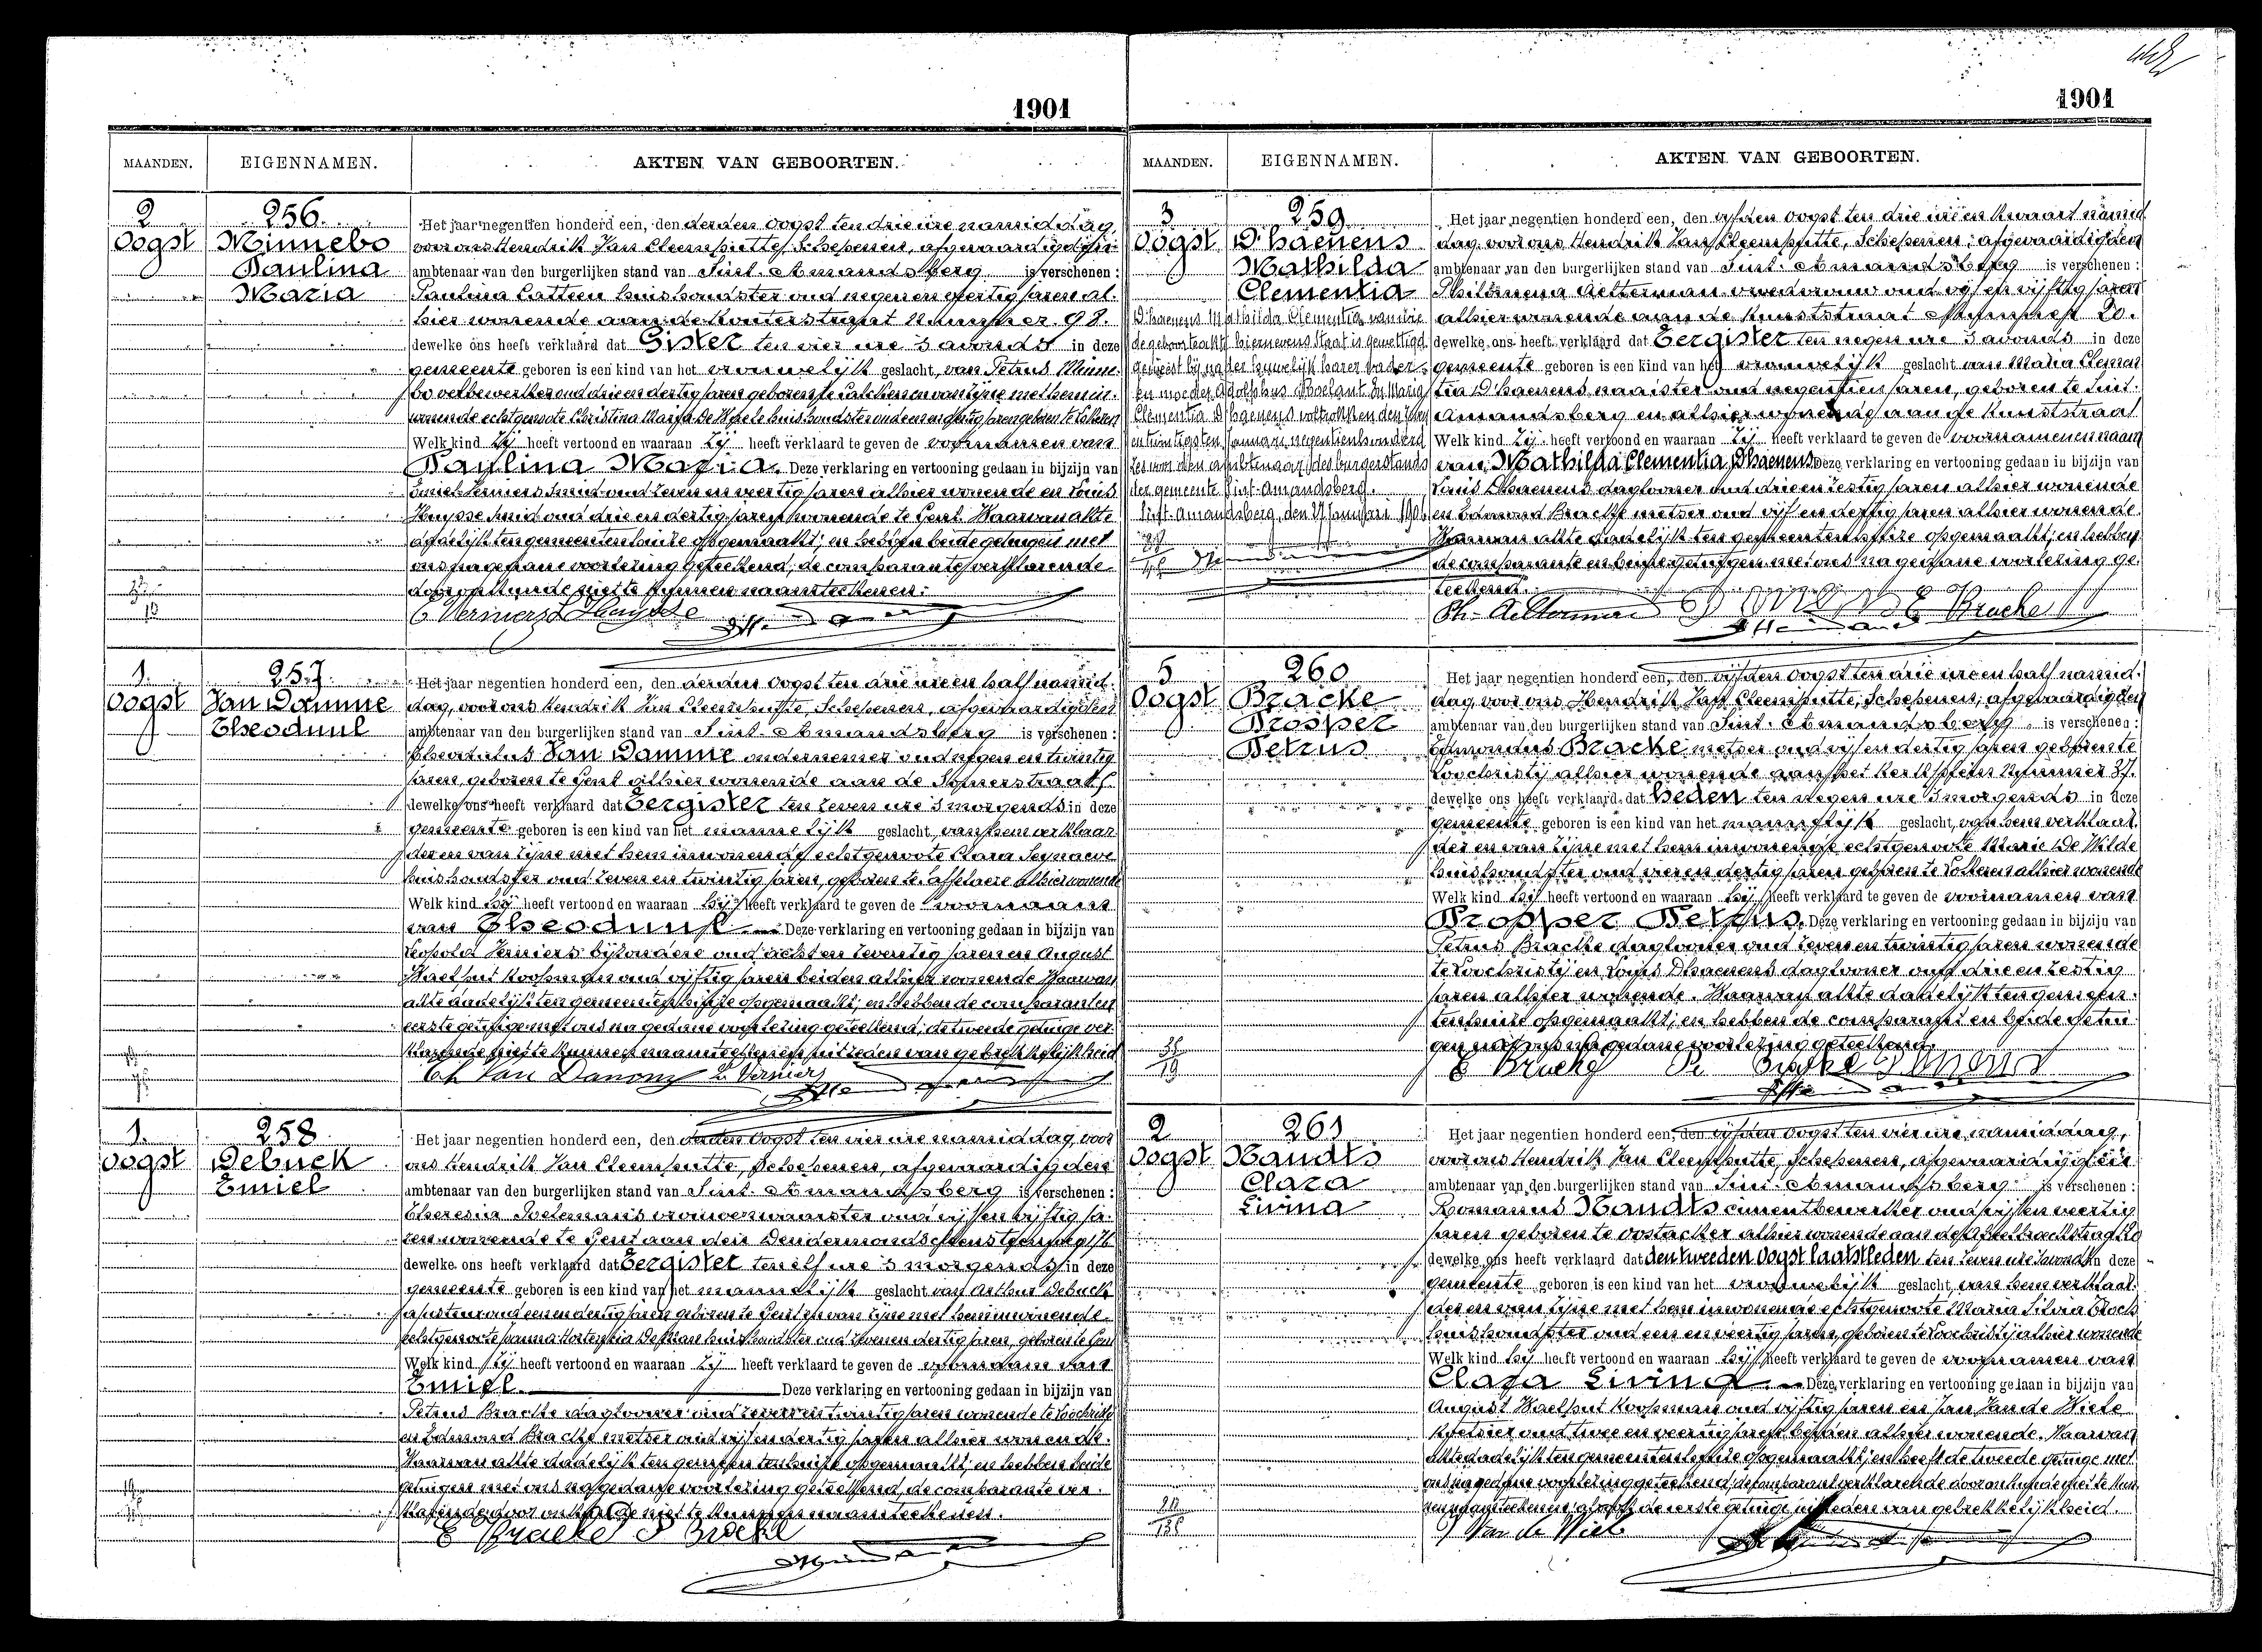 1901
MAANDEN. EIGENNAMEN. AKTEN VAN GEBOORTEN.
2 Oogst
256.
Minnebo
Paulina
Maria
Het jaar negentien honderd een, den derden Oogst ten drie ure namiddag
voor ons Hendrik Jan Cleemputte, Schepenen, afgevaardigden
ambtenaar van den burgerlijken stand van Sint-Amandsberg is verschenen:
Paulina Catteeu huishoudster oud negen en veertig jaren al-
hier wonende aan de Kouterstraat Nummer 98.
dewelke ons heeft verklaard dat Gister ten vier ure 's avonds in deze
gemeente geboren is een kind van het vrouwelijk geslacht, van Petrus Minne-
bo velbewerker oud drie en dertig jaren geboren te Calcken en van zijne met hem in-
wonende echtgenoote Christina Maria De Waele huishoudster oud een en dertig jaren geboren te
Welk kind Zij heeft vertoond en waaraan Zij heeft verklaard te geven de voornamen van
Paulina Maria. Deze verklaring en vertooning gedaan in bijzijn van
Emiel Verniers Smid oud zeven en veertig jaren alhier wonende en Louis
Huysse Smid oud drie en dertig jaren wonende te Gent. Waarvan akte
dadelijk ten gemeentenhuize opgemaakt; en hebben beide getuigen met
ons na gedane voorlezing geteekend; de comparante verklarende
door onkunde niet te kunnen naamteekenen.
E Verniers L Huysse
1. Oogst
257.
Van Damme
Theoduul
Het jaar negentien honderd een, den derden Oogst ten drie ure en half namid-
dag, voor ons Hendrik Jan Cleemputte, Schepenen, afgevaardigden
ambtenaar van den burgerlijken stand van Sint-Amandsberg is verschenen:
Van Damme ondernemer oud en twintig
jaren, geboren te Gent alhier wonende aan de
dewelke ons heeft verklaard dat Eergister ten zeven ure 's morgends in deze
gemeente geboren is een kind van het mannelijk geslacht, van hem verklaar-
der en van zijne met hem inwonende echtgenoote Clara Seynaeve
huishoudster oud zeven en twintig jaren, geboren te Afsnee alhier wonende
Welk kind hij heeft vertoond en waaraan hij heeft verklaard te geven de voornaam
van Theoduul. Deze verklaring en vertooning gedaan in bijzijn van
Leopold Verniers bijzondere oud acht en zeventig jaren en August
Waelput Koopman oud vijftig jaren beiden alhier wonende. Waarvan
akte dadelijk ten gemeentenhuize opgemaakt; en hebben de comparant en
eerste getuige met ons na gedane voorlezing geteekend; de tweede getuige ver-
klarende niet te kunnen naamteekenen uit reden van gebrekkelijkheid
Th Van Damme L Verniers
1. Oogst
258
Debuck
Emiel
Het jaar negentien honderd een, den derden Oogst ten vier ure namiddag, voor
ons Hendrik Jan Cleemputte, Schepenen, afgevaardigden
ambtenaar van den burgerlijken stand van Sint-Amandsberg is verschenen:
Theresia Poelmans vroedvrouw oud vijf en vijftig ja-
ren wonende te Gent aan den Dendermondschen Steenweg 176
dewelke ons heeft verklaard dat Eergister ten elf ure 's morgends in deze
gemeente geboren is een kind van het mannelijk geslacht van Arthur Debuck
oud een en dertig jaren geboren te Gent en van zijne met hem inwonende
echtgenoote Joanna Hortensia huishoudster oud en dertig jaren, geboren te Gent
Welk kind Zij heeft vertoond en waaraan Zij heeft verklaard te geven de voornaam van
Emiel. Deze verklaring en vertooning gedaan in bijzijn van
Petrus Bracke daglooner oud zeven en twintig jaren wonende te Loochristi
en Edmond Bracke metser oud vijf en dertig jaren alhier wonende.
Waarvan akte dadelijk ten gemeentenhuize opgemaakt; en hebben beide
getuigen met ons na gedane voorlezing geteekend, de comparante ver-
klarende door onkunde niet te kunnen naamteekenen.
E Bracke P Bracke
1901
MAANDEN. EIGENNAMEN. AKTEN VAN GEBOORTEN.
3 Oogst
259
D'haenens
Mathilda
Clementia
D'haenens Mathilda Clementia van wie
de geboorteakt hiernevens staat is gewettigd
geweest bij het huwelijk harer vader
en moeder Adolphus Roelant en Maria
Clementia D'haenens voltrokken den
en twintigsten Januari negentienhonderd
zes voor den ambtenaar des burgerstands
der gemeente Sint-Amandsberg.
Sint-Amandsberg, den Januari 1906
Het jaar negentien honderd een, den vijfden Oogst ten drie ure en kwaart namid-
dag, voor ons Hendrik Jan Cleemputte, Schepenen, afgevaardigden
ambtenaar van den burgerlijken stand van Sint-Amandsberg is verschenen:
Philomena Aelterman vroedvrouw oud vijf en vijftig jaren
alhier wonende aan de Kunststraat Nummer 20.
dewelke ons heeft verklaard dat Eergister ten negen ure 's avonds in deze
gemeente geboren is een kind van het vrouwelijk geslacht van Maria Clemen-
tia D'haenens naaister oud negentien jaren, geboren te Sint-
Amandsberg en alhier wonende aan de Kunststraat
Welk kind Zij heeft vertoond en waaraan Zij heeft verklaard te geven de voornamen en naam
van Mathilda Clementia D'haenens Deze verklaring en vertooning gedaan in bijzijn van
Louis D'haenens daglooner oud drie en zestig jaren alhier wonende
en Edmond Bracke metser oud vijf en dertig jaren alhier wonende.
Waarvan akte dadelijk ten gemeentenhuize opgemaakt; en hebben
de comparante en beide getuigen met ons na gedane voorlezing ge-
teekend.
Ph. Aelterman E Bracke
5 Oogst
260
Bracke
Prosper
Petrus
Het jaar negentien honderd een, den vijfden Oogst ten drie ure en half namid-
dag, voor ons Hendrik Jan Cleemputte, Schepenen, afgevaardigden
ambtenaar van den burgerlijken stand van Sint-Amandsberg is verschenen:
Edmondus Bracke metser oud vijf en dertig jaren geboren te
Loochristij alhier wonende aan het Kerkplein Nummer 37.
dewelke ons heeft verklaard dat Heden ten negen ure 's morgends in deze
gemeente geboren is een kind van het mannelijk geslacht, van hem verklaar-
der en van zijne met hem inwonende echtgenoote Marie De Wilde
huishoudster oud vier en dertig jaren geboren te Lokeren alhier wonende
Welk kind hij heeft vertoond en waaraan hij heeft verklaard te geven de voornamen van
Prosper Petrus. Deze verklaring en vertooning gedaan in bijzijn van
Petrus Bracke daglooner oud zeven en twintig jaren wonende
te Loochristij en Louis D'haenens daglooner oud drie en zestig
jaren alhier wonende. Waarvan akte dadelijk ten gemeen-
tenhuize opgemaakt; en hebben de comparant en beide getui-
gen met ons na gedane voorlezing geteekend.
E Bracke P Bracke
2 Oogst
261
Handts
Clara
Livina
Het jaar negentien honderd een, den vijfden Oogst ten vier ure namiddag,
voor ons Hendrik Jan Cleemputte, Schepenen, afgevaardigden
ambtenaar van den burgerlijken stand van Sint-Amandsberg is verschenen:
Romanus Handts cimentbewerker oud vijf en veertig
jaren geboren te Oostacker alhier wonende aan de
dewelke ons heeft verklaard dat den tweeden Oogst laatstleden ten zeven ure 's avonds in deze
gemeente geboren is een kind van het vrouwelijk geslacht, van hem verklaar-
der en van zijne met hem inwonende echtgenoote Maria Silvia
huishoudster oud een en veertig jaren, geboren te Loochristij alhier wonende
Welk kind hij heeft vertoond en waaraan hij heeft verklaard te geven de voornamen van
Clara Livina. Deze verklaring en vertooning gedaan in bijzijn van
August Waelput Koopman oud vijftig jaren en Jan Van de Wiele
oud twee en veertig jaren beiden alhier wonende. Waarvan
akte dadelijk ten gemeentenhuize opgemaakt; en heeft de tweede getuige met
ons na gedane voorlezing geteekend; de comparant verklarende door onkunde niet te kun-
nen naamteekenen alsook de eerste getuige uit reden van gebrekkelijkheid.
J Van de Wiele